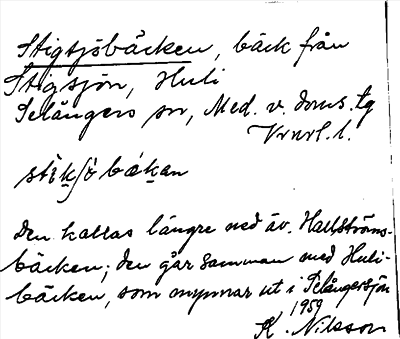 Stigsjöbäcken, bäck från
Stigsjön, Huli
Selångers sn, Med. v. doms. tg
Vrnrl. l.
bäkan
Den kallas längre ned äv. Hallströms-
bäcken; den går samman med Huli-
bäcken, som mynnar ut i Selångersjön
1959
K. Nilsson